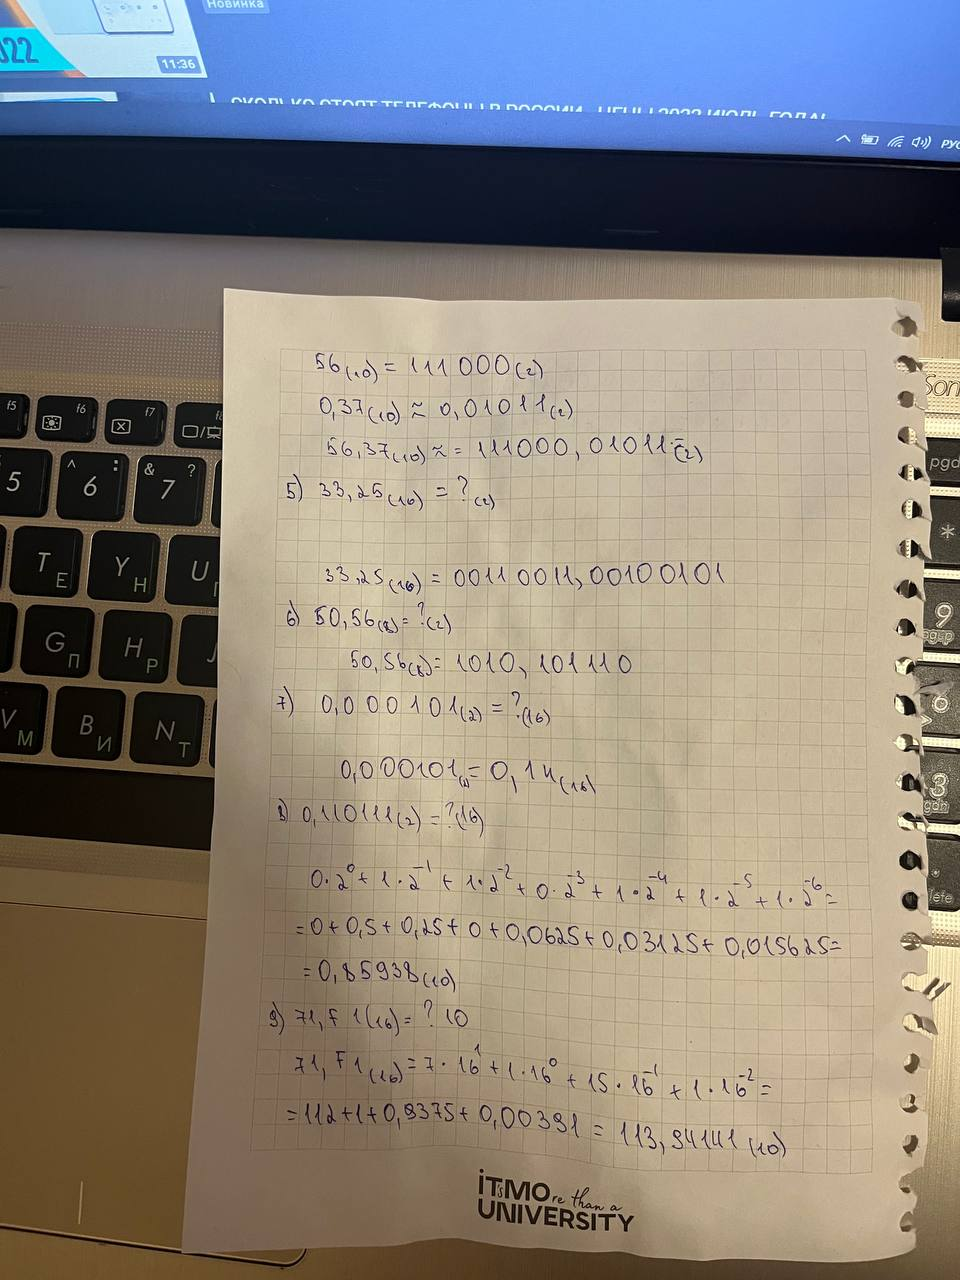 Новинка
022
11:36
СКОЛЬКО СТОЯТ ТЕЛЕФОНЫ В РОССИИ ЦЕНЫ 2022 ИЮЛЬ ГОДА!
РУС
56(10) = 111 000(2)
0,37(10) ≈ 0,01011(2)
56,37(10) ≈ = 111000, 01011(2)
5) 33,25(16) = ?(2)
33,25(16) = 0011 0011, 00100101
6) 50,56(8) = ?(2)
50,56(8) = 1010, 101 110
7) 0,0 00 101(2) = ?(16)
0,000101(2) = 0,14(16)
8) 0,110111(2) = ?(16)
0·2⁰ + 1·2⁻¹ + 1·2⁻² + 0·2⁻³ + 1·2⁻⁴ + 1·2⁻⁵ + 1·2⁻⁶ =
= 0 + 0,5 + 0,25 + 0 + 0,0625 + 0,03125 + 0,015625 =
= 0,85938(10)
9) 71,F1(16) = ? 10
71,F1(16) = 7·16¹ + 1·16⁰ + 15·16⁻¹ + 1·16⁻² =
= 112 + 1 + 0,9375 + 0,00391 = 113,94141(10)
iT'sMOre than a
UNIVERSITY
f5
f6
f7
f8
5
^ 6 :
& 7 ?
Т Е
Y Н
U
G П
H Р
J
V М
B И
N Т
Son
pgd
*
9
pg-p
6
3
pgdn